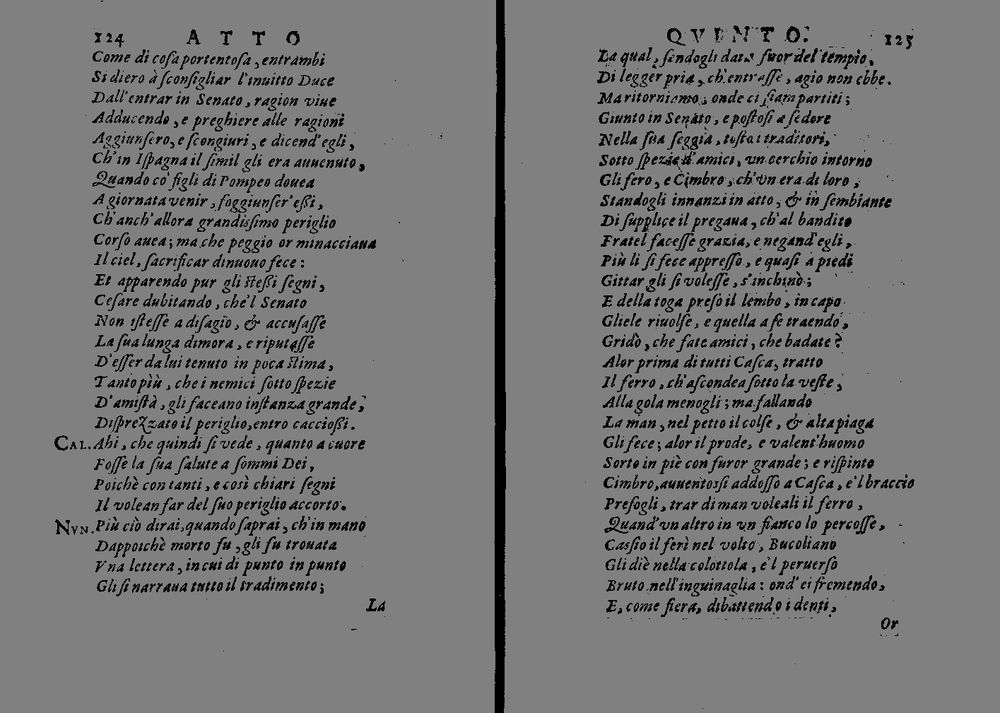 124 ATTO
Come di coſa portentoſa, entrambi
Si diero à ſconſigliar l'inuitto Duce
Dall'entrar in Senato, ragion viue
Adducendo, e preghiere alle ragioni
Aggiunſero, e ſcongiuri, e dicend'egli,
Ch'in Iſpagna il ſimil gli era auuenuto,
Quando co' figli di Pompeo douea
A giornata venir, ſoggiunſer'eßi,
Ch'anch'allora grandiſſimo periglio
Corſo auea; ma che peggio or minacciaua
Il ciel, ſacrificar dinuouo fece:
Et apparendo pur gli steßi ſegni,
Ceſare dubitando, che'l Senato
Non iſteſſe a diſagio, & accuſaſſe
La ſua lunga dimora, e riputaſſe
D'eſſer da lui tenuto in poca stima,
Tanto più, che i nemici ſotto ſpezie
D'amiſtà, gli faceano inſtanza grande,
Diſprezzato il periglio, entro caccioßi.
CAL. Ahi, che quindi ſi vede, quanto a cuore
Foſſe la ſua ſalute a ſommi Dei,
Poichè con tanti, e così chiari ſegni
Il volean far del ſuo periglio accorto.
NVN. Più ciò dirai, quando ſaprai, ch'in mano
Dappoichè morto fu, gli fu trouata
Vna lettera, in cui di punto in punto
Gli ſi narraua tutto il tradimento;
La
QVINTO. 125
La qual, ſendogli data fuor del tempio,
Di legger pria, ch'entraſſe, agio non ebbe.
Ma ritorniamo, onde ci ſiam partiti;
Giunto in Senato, e poſtoſi a ſedere
Nella ſua ſeggia, toſto i traditori,
Sotto ſpezie d'amici, vn cerchio intorno
Gli fero, e Cimbro, ch'vn era di loro,
Standogli innanzi in atto, & in ſembiante
Di ſupplice il pregaua, ch'al bandito
Fratel faceſſe grazia, e negand'egli,
Più li ſi fece appreſſo, e quaſi a piedi
Gittar gli ſi voleſſe, s'inchinò;
E della toga preſo il lembo, in capo
Gliele riuolſe, e quella a ſe traendo,
Gridò, che fate amici, che badate?
Alor prima di tutti Caſca, tratto
Il ferro, ch'aſcondea ſotto la veſte,
Alla gola menogli; ma fallando
La man, nel petto il colſe, & alta piaga
Gli fece; alor il prode, e valent'huomo
Sorto in piè con furor grande; e riſpinto
Cimbro, auuentosſi addoſſo a Caſca, e'l braccio
Preſogli, trar di man voleali il ferro,
Quand'vn altro in vn fianco lo percoſſe,
Caſſio il ferì nel volto, Bucoliano
Gli diè nella colottola, e'l peruerſo
Bruto nell'inguinaglia: ond'ei fremendo,
E, come fiera, dibattendo i denti,
Or